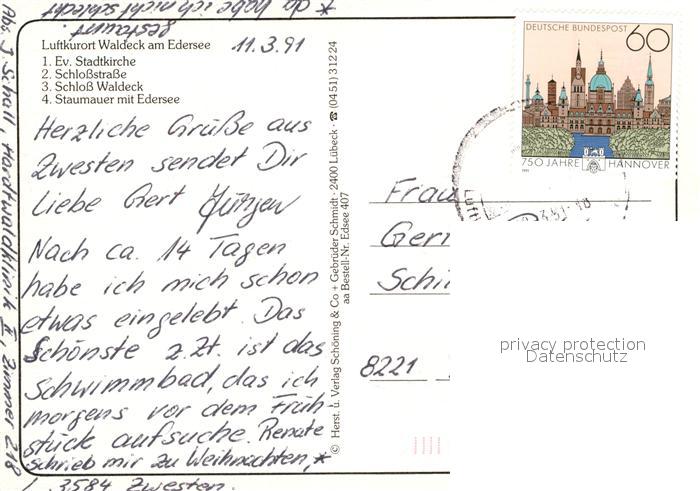 * da habe ich nicht schlecht
gestaunt.
Luftkurort Waldeck am Edersee
11.3.91
1. Ev. Stadtkirche
2. Schloßstraße
3. Schloß Waldeck
4. Staumauer mit Edersee
Herzliche Grüße aus
Zwesten sendet Dir
liebe Gert Jürgen
Nach ca. 14 Tagen
habe ich mich schon
etwas eingelebt. Das
Schönste z.Zt. ist das
Schwimmbad, das ich
morgens vor dem Früh-
stück aufsuche. Renate
schrieb mir zu Weihnachten,*
Abs. J. Schall, Hardtwaldklinik II, Zimmer 218
3584 Zwesten.
© Herst. u. Verlag Schöning & Co + Gebrüder Schmidt · 2400 Lübeck · ☎ (0451) 31224
aa Bestell-Nr. Edsee 407
DEUTSCHE BUNDESPOST 60
750 JAHRE HANNOVER
1991
Frau
Schi
8221
privacy protection
Datenschutz